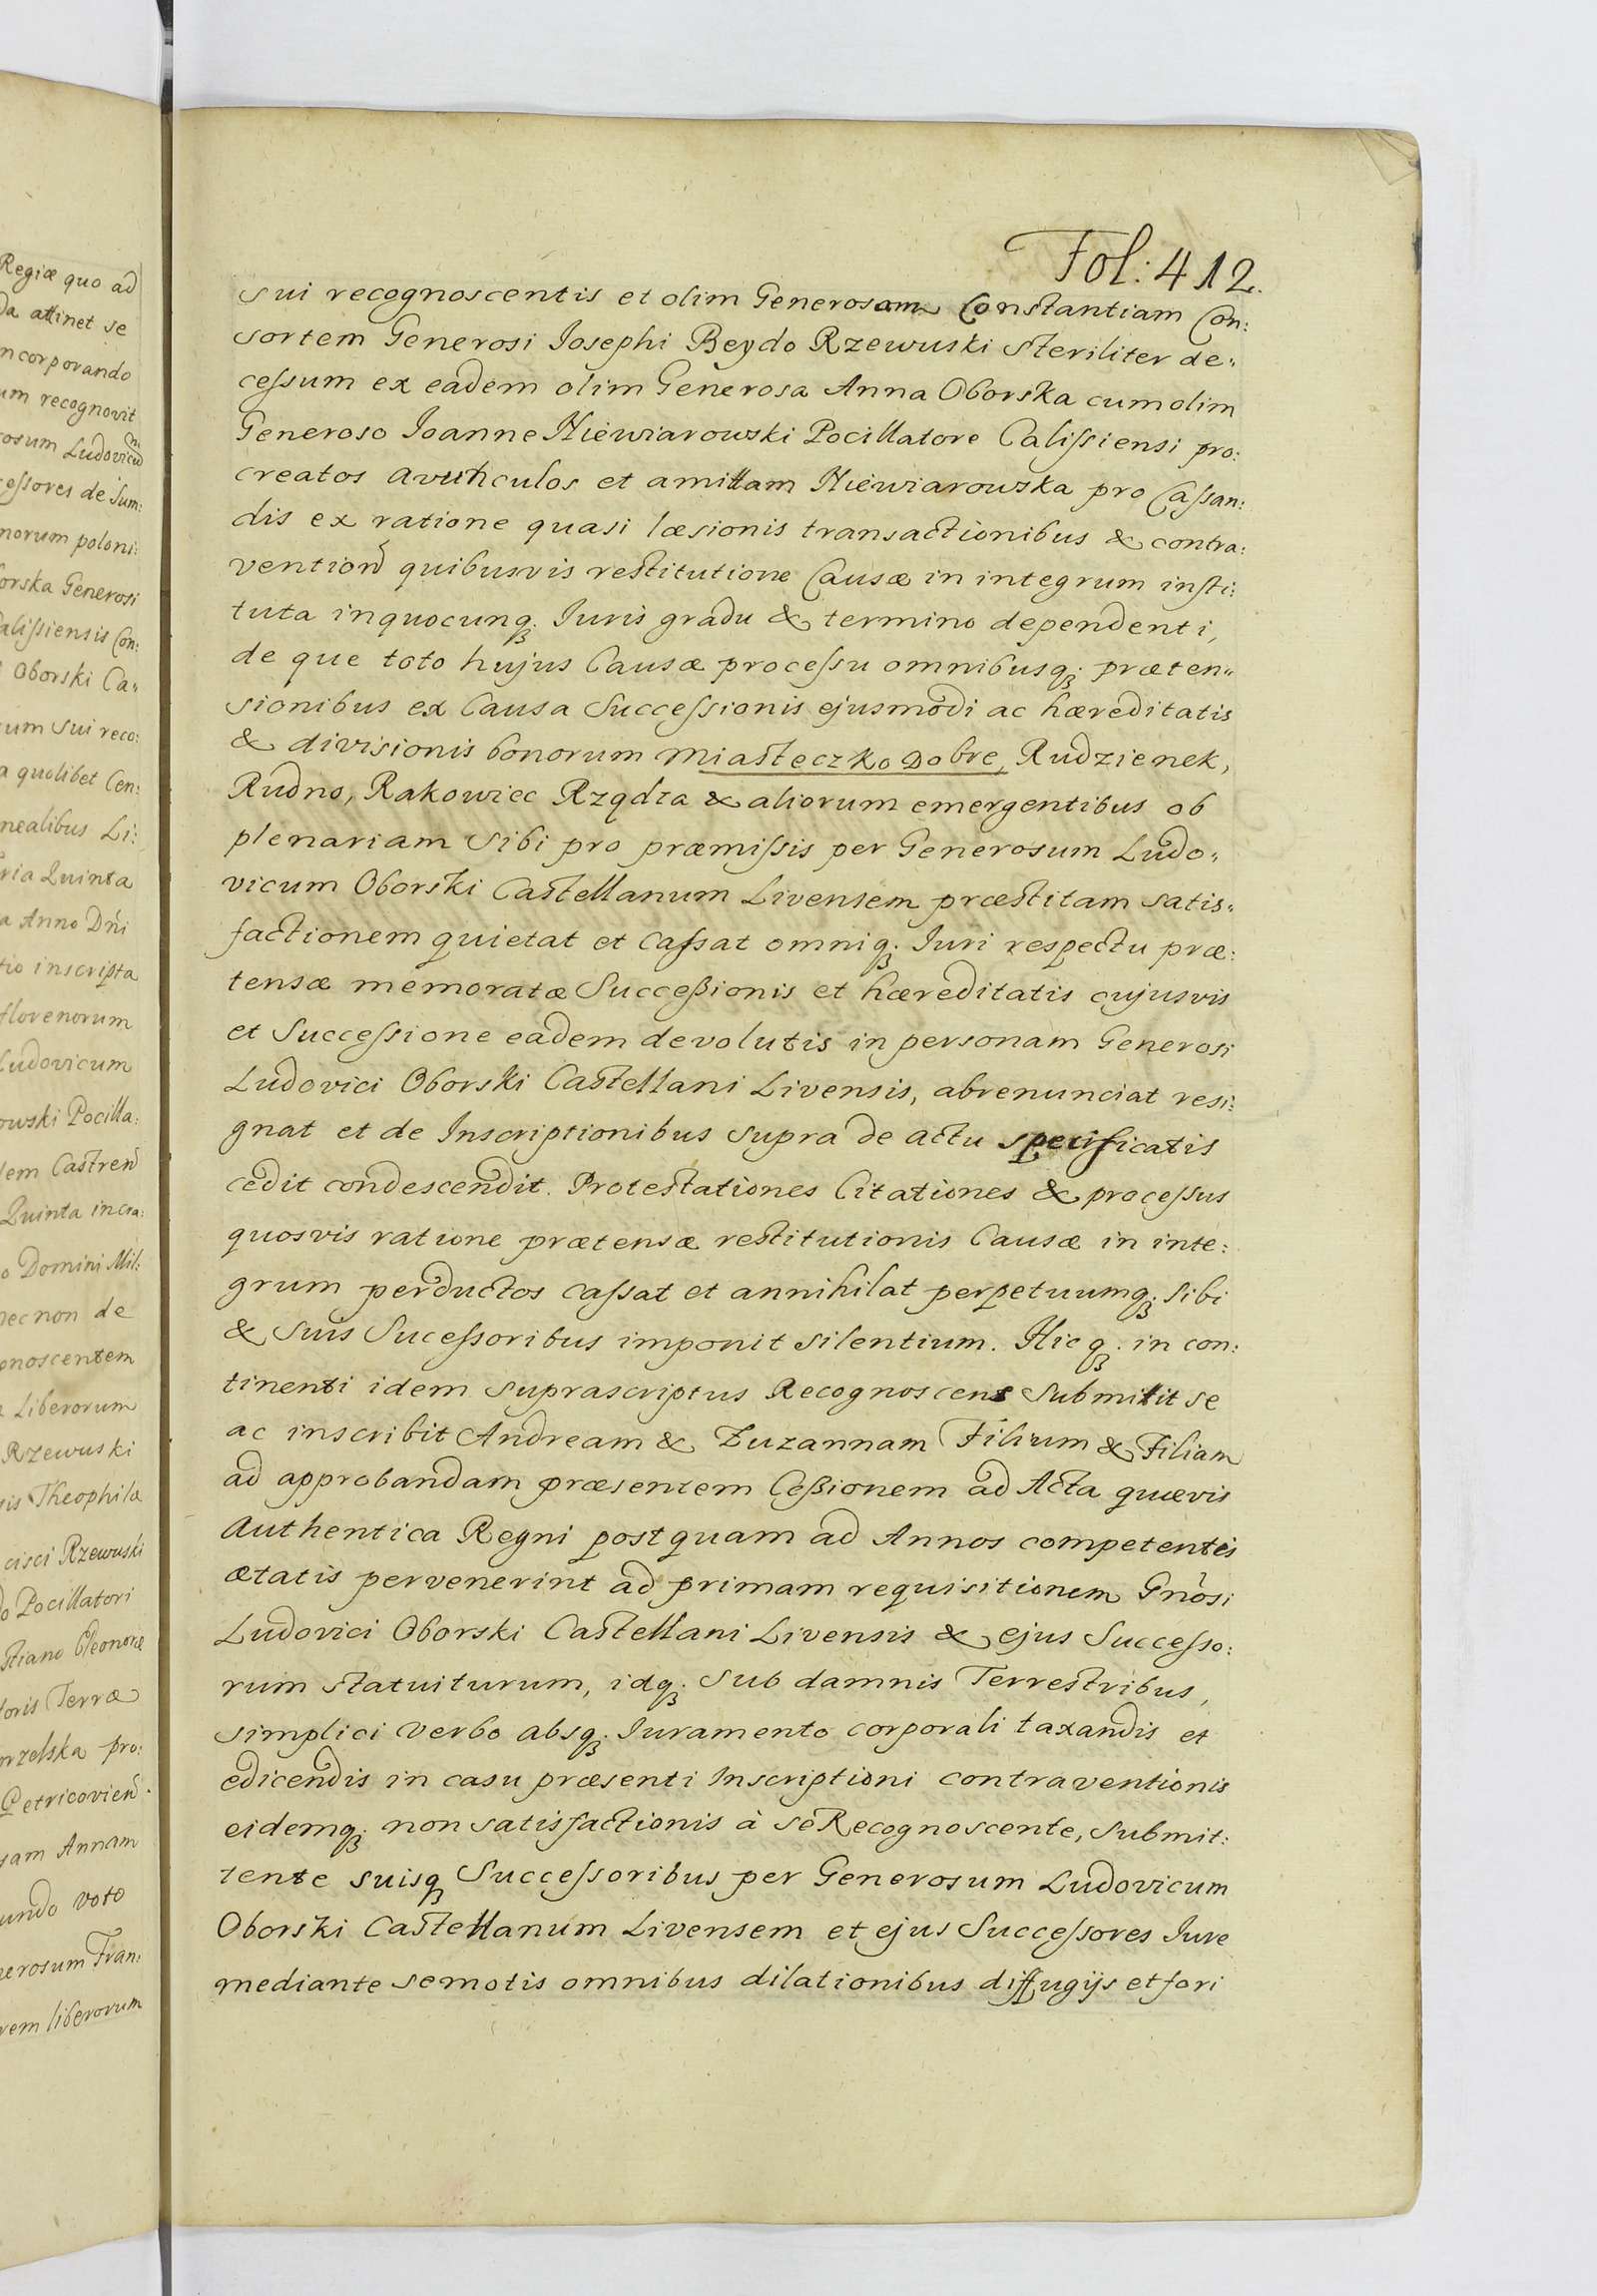 Regiæ quo ad
Da attinet se
ncorporando
um recognovit
rosum Ludovicum
cessores de Sum:
norum poloni:
orska Generosi
alissiensis Con:
Oborski Ca„
um sui reco:
a quolibet Cen:
nealibus Li:
ria Quinta
a Anno Dńi
tio inscripta
florenorum
Ludovicum
owski Pocilla:
dem Castren
Quinta incra:
o Domini Mil:
necnon de
gnoscentem
Liberorum
Rzewuski
sis Theophila
cisci Rzewuski
do Pocillatori
stiano Eleonoræ
loris Terræ
orzelska pro:
Petricovien
sam Annam
undo voto
nerosum Fran:
rem liberorum
Fol: 412.
sui recognoscentis et olim Generosam Constantiam Con:
sortem Generosi Iosephi Beydo Rzewuski steriliter de„
cessum ex eadem olim Generosa Anna Oborska cum olim
Generoso Ioanne Niewiarowski Pocillatore Calissiensi pro:
creatos avunculos et amittam Niewiarowska pro Cassan:
dis ex ratione quasi læsionis transactionibus & contra:
vention quibusvis restitutione Causæ in integrum insti:
tuta inquocunq; Iuris gradu & termino dependenti,
de que toto hujus Causæ processu omnibusq; præten„
sionibus ex Causa Successionis ejusmodi ac hæreditatis
& divisionis bonorum Miasteczko Dobre, Rudzienek,
Rudno, Rakowiec Rządza & aliorum emergentibus ob
plenariam sibi pro præmissis per Generosum Ludo„
vicum Oborski Castellanum Livensem præstitam satis„
factionem quietat et Cassat omniq; Iuri respectu præ:
tensæ memoratæ Successionis et hæreditatis cujusvis
et Successione eadem devolutis in personam Generosi
Ludovici Oborski Castellani Livensis, abrenunciat resi:
gnat et de Inscriptionibus supra de actu specificatis
cedit condescendit. Protestationes Citationes & processus
quosvis ratione prætensæ restitutionis Causæ in inte:
grum perductos cassat et annihilat perpetuumq; sibi
& suis Sucessoribus imponit silentium. Hicq; in con:
tinenti idem suprascriptus Recognoscens Submittit se
ac inscribit Andream & Zuzannam Filium & Filiam
ad approbandam præsentem Cessionem ad Acta quævis
Authentica Regni postquam ad Annos competentis
ætatis pervenerint ad primam requisitionem Gnosi
Ludovici Oborski Castellani Livensis & ejus Successo:
rum statuiturum, idq; sub damnis Terrestribus,
simplici verbo absq; Iuramento corporali taxandis et
edicendis in casu præsenti Inscriptioni contraventionis
eidemq; non satisfactionis à se Recognoscente, submit:
tente suisq Successoribus per Generosum Ludovicum
Oborski Castellanum Livensem et ejus Successores Iure
mediante semotis omnibus dilationibus diffugijs et fori